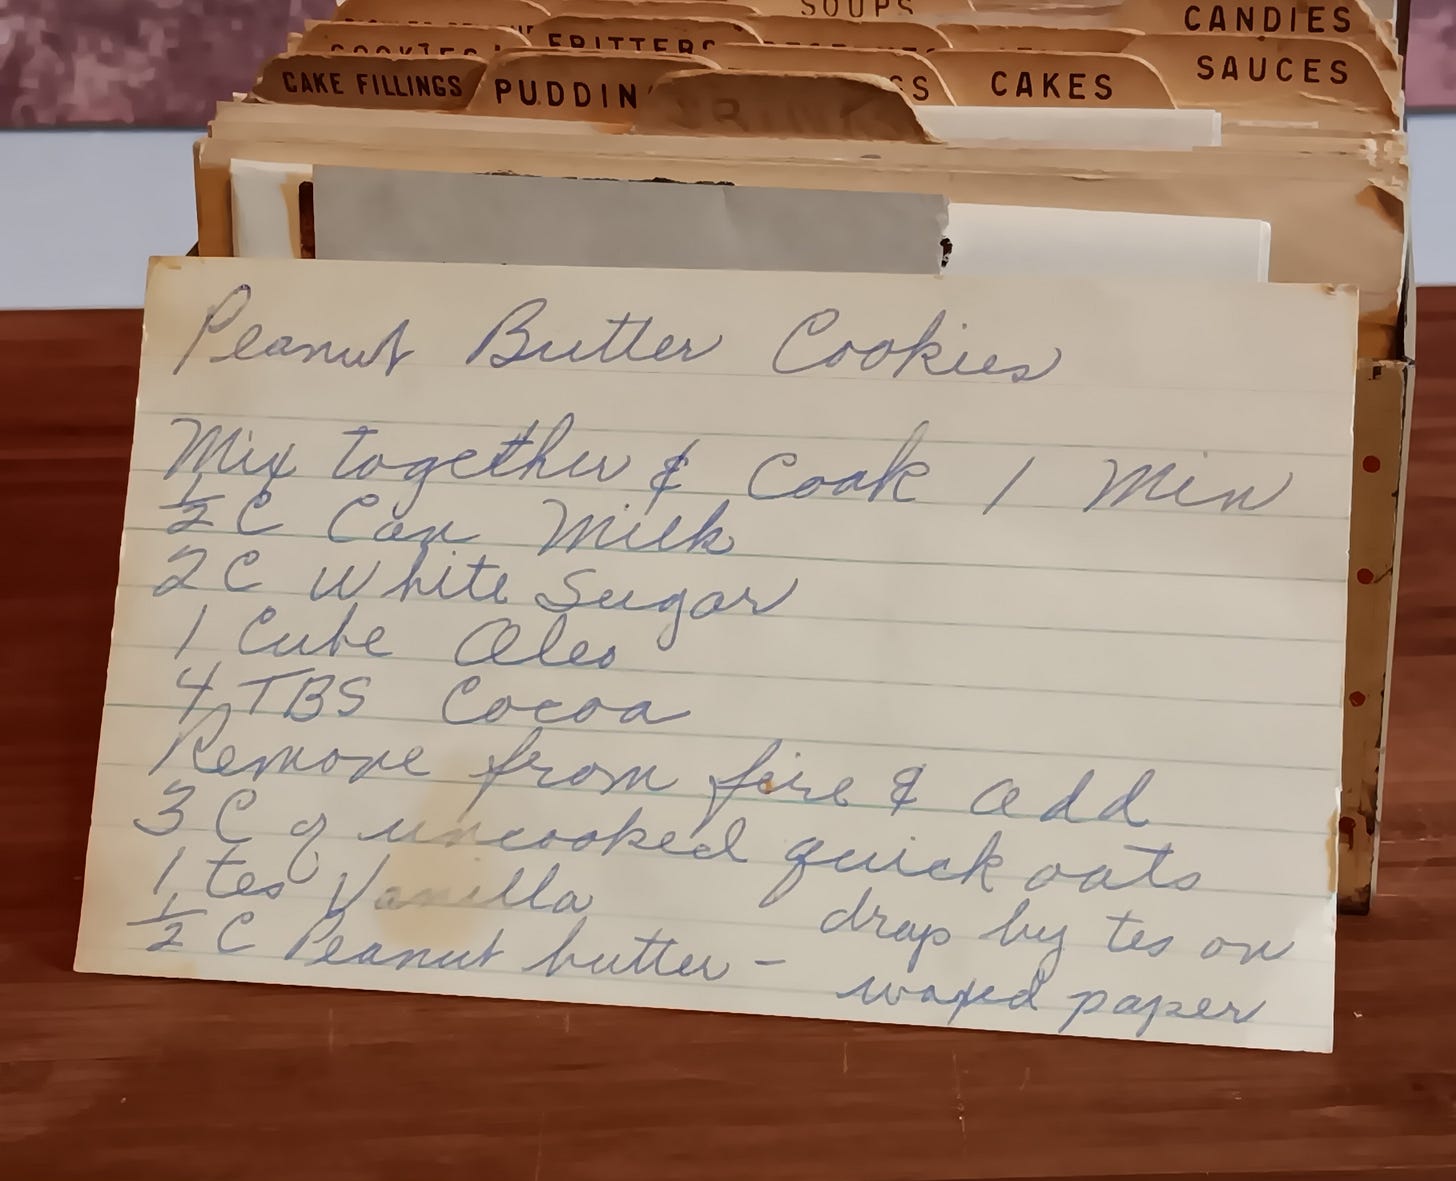 SOUPS
CANDIES
COOKIES FRITTERS
SAUCES
CAKE FILLINGS PUDDIN GS CAKES
DRINKS
Peanut Butter Cookies
Mix together & Cook 1 Min
½ C Can Milk
2 C White Sugar
1 Cube Oleo
4 TBS Cocoa
Remove from fire & add
3 C of uncooked quick oats
1 tes Vanilla
½ C Peanut butter -
drop by tes on
waxed paper